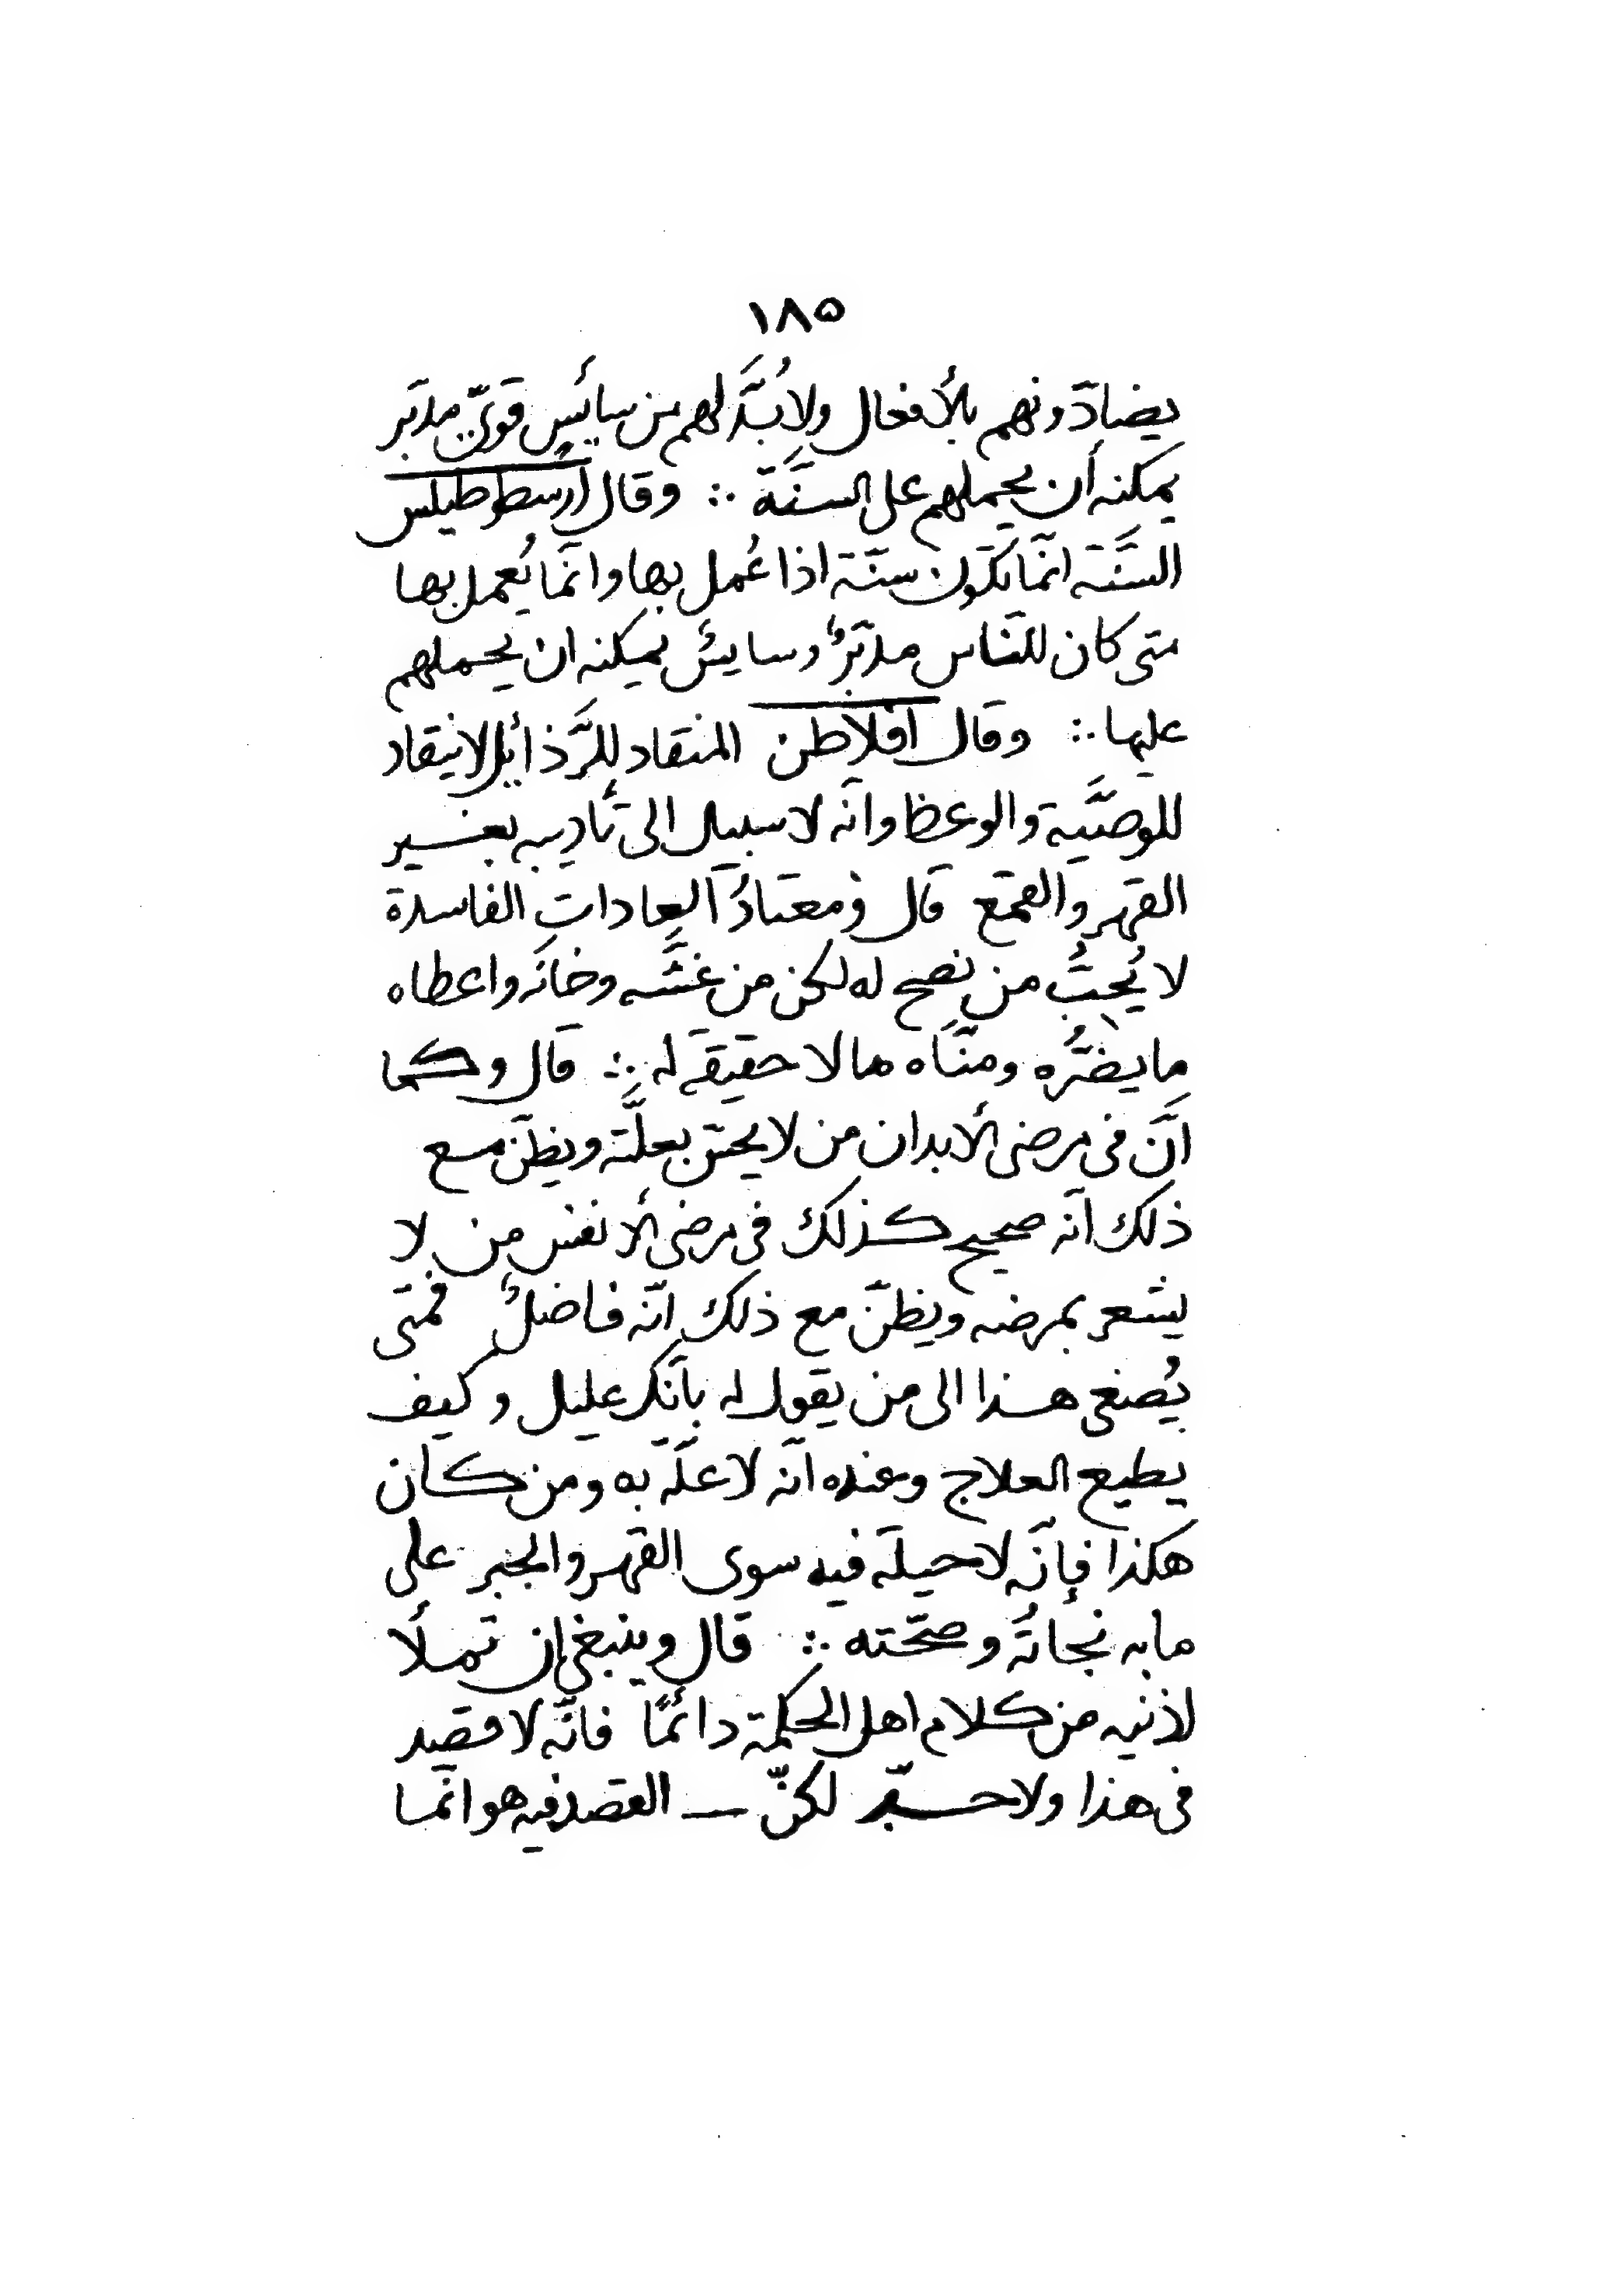 ١٨٥
يضادّونهم بالأفعال ولابُدَّ لهم من سايَسٍ قوىّ مدبّر
يمكنه أن يحملهم على السنَّة ∴ وقال أرسطوطيلس
السَّنّة انّما تكون سنّة اذا عُمل بها وانّما يُعمل بها
متى كان للنّاس مدبّرٌ وسايسٌ يمكنه ان يحملهم
عليها ∴ وقال افلاطن المنقاد للرَّذائل لا ينقاد
للوصيَّة والوعظ وانّه لا سبيل الى تأديبه بغير
القهر والقمع قال ومعتادُ العادات الفاسدة
لا يُحبُّ من نصح له لكن من غشَّه وخانَه واعطاه
ما يضرُّه ومنّاه ما لا حقيقة له ∴ قال وكما
انَّ فى مرضى الأبدان من لا يحسّ بعلَّته ويظنّ مع
ذلك انّه صحيح كذلك فى مرضى الأنفس من لا
يشعر بمرضه ويظنّ مع ذلك انّه فاضلٌ فمتى
يُصغى هذا الى من يقول له بأنّك عليل وكيف
يطيع العلاج وعنده انّه لا علّة به ومن كان
هكذا فإنّه لا حيلة فيه سوى القهر والجبر على
ما به نجاتُه وصحّته ∴ قال وينبغى ان تملأ
اذنيه من كلام اهل الحكمة دائمًا فانّه لا قصد
فى هذا ولا حدّ لكنّ — القصد فيه هو انّما